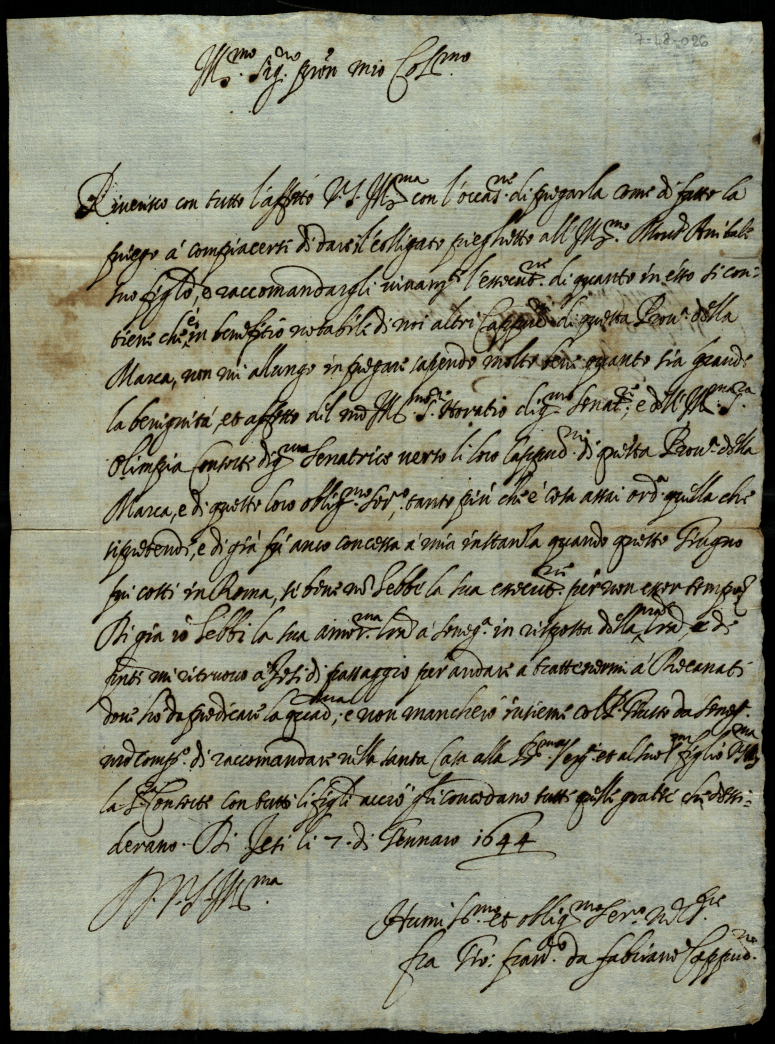 7-48-026
Ill.mo Sig.re pron mio Coll.mo
Riverisco con tutto l'affetto V.S. Ill.ma con l'occas.ne di pregarla come di fatto la
priego à compiacersi di dare il colligato prieghetto all Ill.mo Mons.r Anibale
suo figlo, e raccomandargli vivam.te l'essecut.ne di quanto in esso si con-
tiene che è in beneficio notabile di noi altri Cappuc.ni di questa Prov.a della
Marca, non mi allungo in pregare sapendo molto bene quanto sia grande
la benignità, et affetto del Ill.mo S.re Horatio dig.mo Senat.re, e dell'Ill.ma S.ra
Olimpia Consorte dig.ma Senatrice verso li loro Cappuc.ni di questa Prov.a della
Marca, e di questo loro oblig.mo Ser.e, tanto più che è cosa assai ord.a quella che
si pretende, e di già fù anco concessa a mia instanza quando questo Giugno
fui costì in Roma, se bene nō hebbi la sua essecut.ne per non esser tempo
Di già io hebbi la sua amor.ma à Seneg.a in risposta della mia, e di
pnte mi ritruovo à Jesi di passaggio per andare à trattenermi à Recanati
dove ho da predicare la quad.ma, e non mancherò insieme col P. da Seneg.
mio comp.o di raccomandare nella santa Casa alla et al suo figlio V.S. Ill.ma
la S.ra Consorte con tutti li figli acciò gli concedano tutte quelle gratie che desi-
derano. Di Jesi li 7. di Gennaro 1644
D.V.S. Ill.ma
Humiliss.mo et oblig.mo Ser.e nel S.re
fra Gio: fran.co da Fabriano Cappuc.no